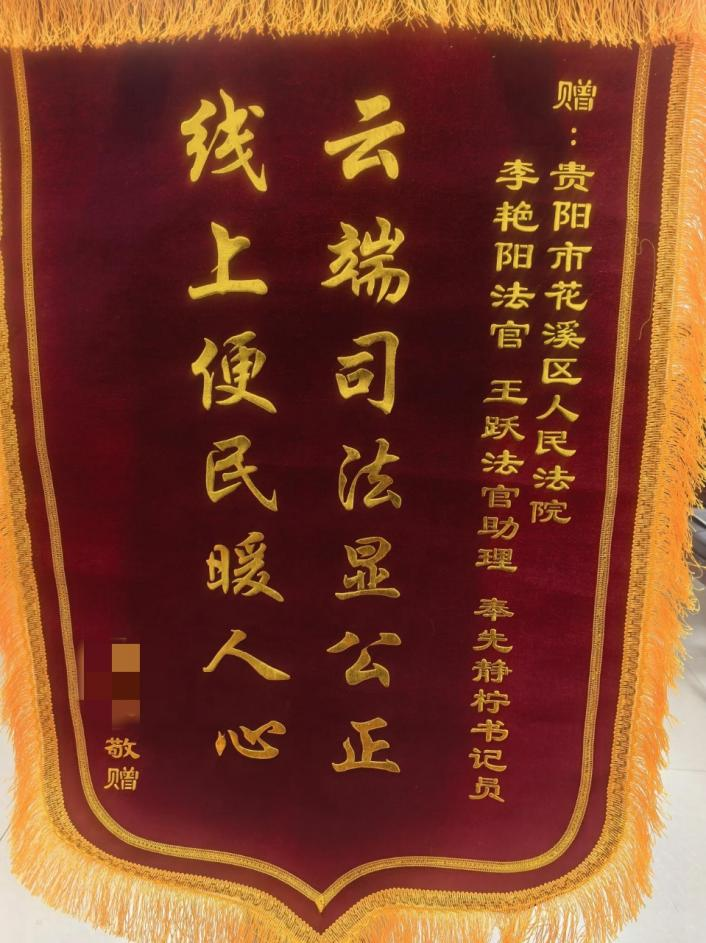 赠：贵阳市花溪区人民法院
李艳阳法官 王跃法官助理 奉先静柠书记员
云端司法显公正
线上便民暖人心
敬赠